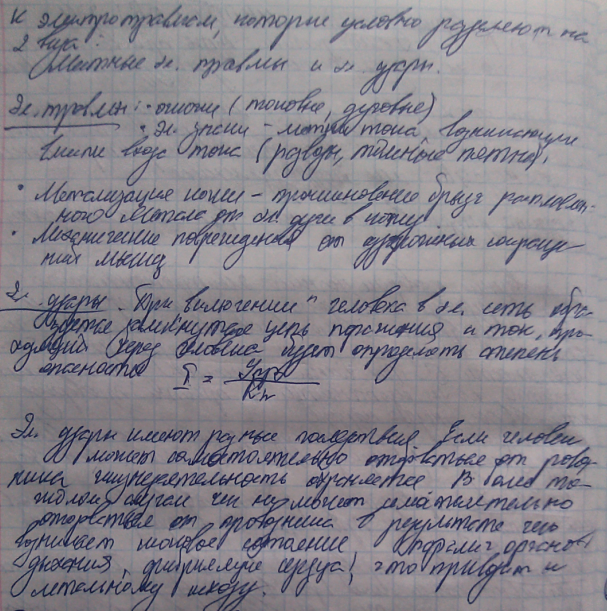 К электротравмам, которые условно разделяют на
2 вида:
Местные эл. травмы и эл удары.
Эл. травмы: · ожоги (токовые, дуговые)
· Эл знаки - метки тока, возникающие
в месте входа тока (разводы, темные пятна),
· Метализация кожи - проникновение брызг расплавлен-
ного метала от эл дуги в кожу
· Механические повреждения от судорожных сокраще-
ний мышц
Эл. удары. При "включении" человека в эл. сеть обра-
зуется замкнутая цепь поражения и ток, про-
ходящий через человека будет определять степень
опасности I =
Эл. удары имеют разные последствия. Если человек
может самостоятельно оторваться от провод-
ника жизнедеятельность сохраняется. В более тя-
желом случае чел не может самостоятельно
оторваться от проводника в результате чего
возникает шоковое состояние (паралич органов
дыхания, фибриляция сердца), это приводит к
летальному исходу.